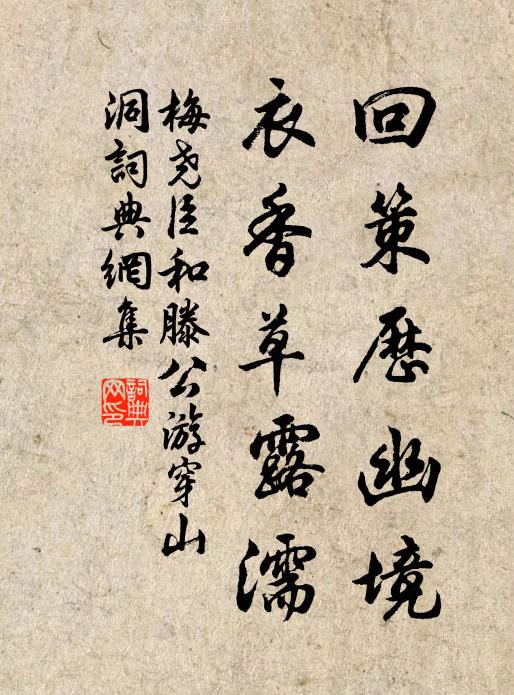 回策歷幽境
衣香草露濡
梅尧臣和滕公游穿山
洞詞典網集
詞典
网印